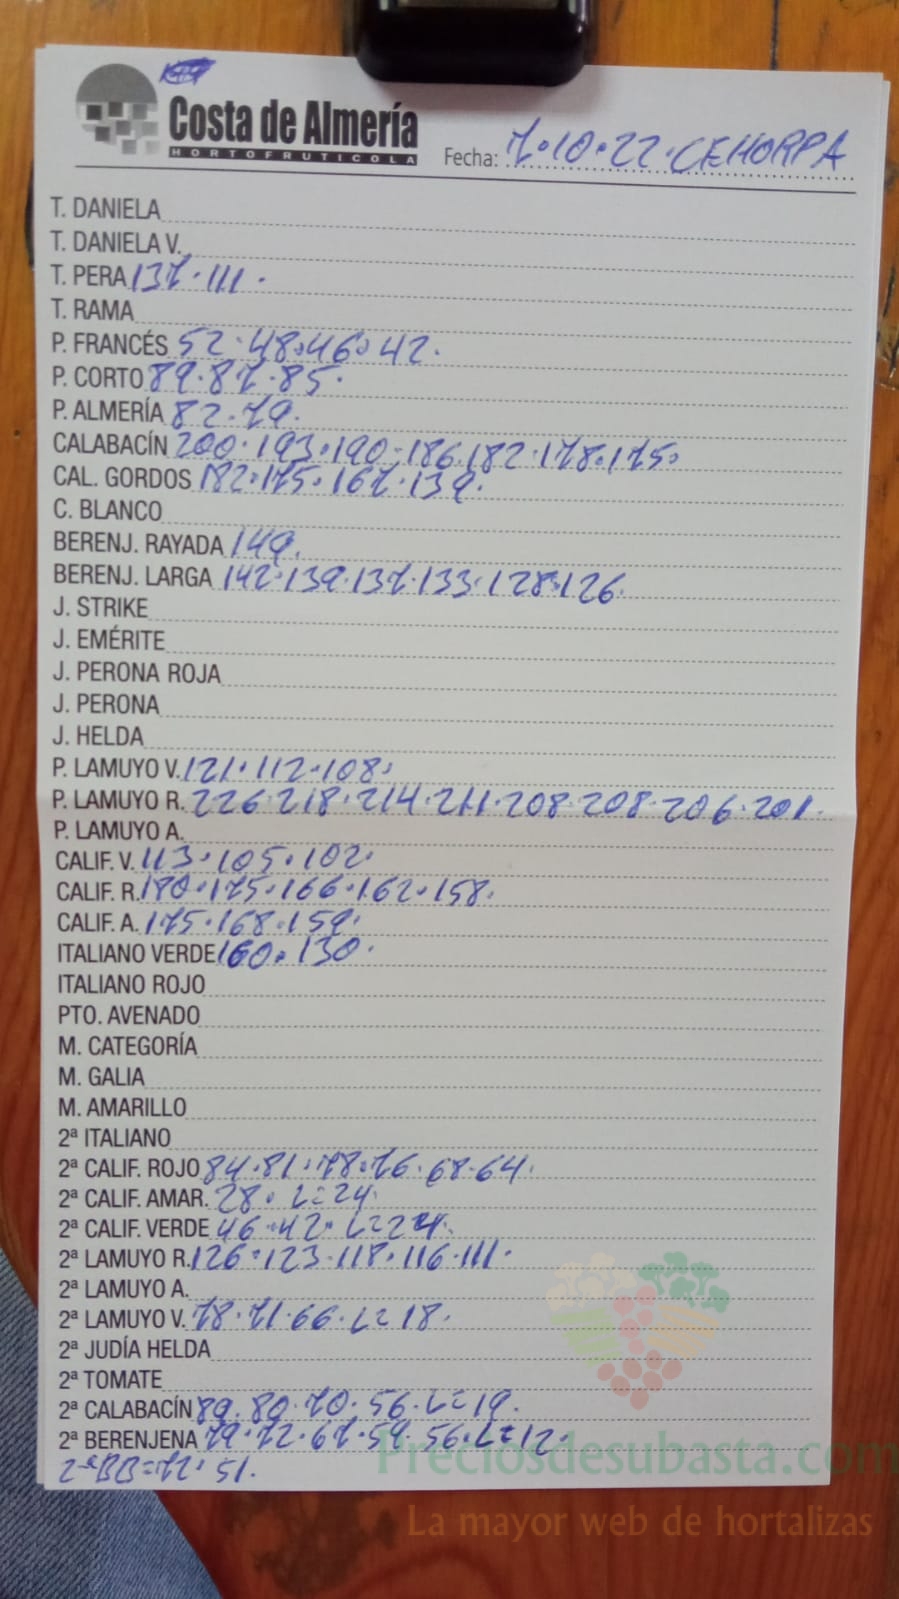 Costa de Almería
HORTOFRUTICOLA
Fecha: 7.10.22.CEHORPA
T. DANIELA
T. DANIELA V.
T. PERA 137.111.
T. RAMA
P. FRANCÉS 52.48.46.42.
P. CORTO 89.87.85.
P. ALMERÍA 82.79.
CALABACÍN 200.193.190.186.182.178.175.
CAL. GORDOS 182.175.167.139.
C. BLANCO
BERENJ. RAYADA 149.
BERENJ. LARGA 142.139.137.133.128.126.
J. STRIKE
J. EMÉRITE
J. PERONA ROJA
J. PERONA
J. HELDA
P. LAMUYO V. 121.112.108.
P. LAMUYO R. 226.218.214.211.208.208.206.201.
P. LAMUYO A.
CALIF. V. 113.105.102.
CALIF. R. 180.175.166.162.158.
CALIF. A. 175.168.159.
ITALIANO VERDE 160.130.
ITALIANO ROJO
PTO. AVENADO
M. CATEGORÍA
M. GALIA
M. AMARILLO
2ª ITALIANO
2ª CALIF. ROJO 84.81.78.76.68.64.
2ª CALIF. AMAR. 28. L=24.
2ª CALIF. VERDE 46.42. L=24.
2ª LAMUYO R. 126.123.118.116.111.
2ª LAMUYO A.
2ª LAMUYO V. 78.71.66.L=18.
2ª JUDÍA HELDA
2ª TOMATE
2ª CALABACÍN 89.80.70.56.L=19.
2ª BERENJENA 79.72.67.59.56.L=12.
2ªBB=72.51.
Preciosdesubasta.com
La mayor web de hortalizas